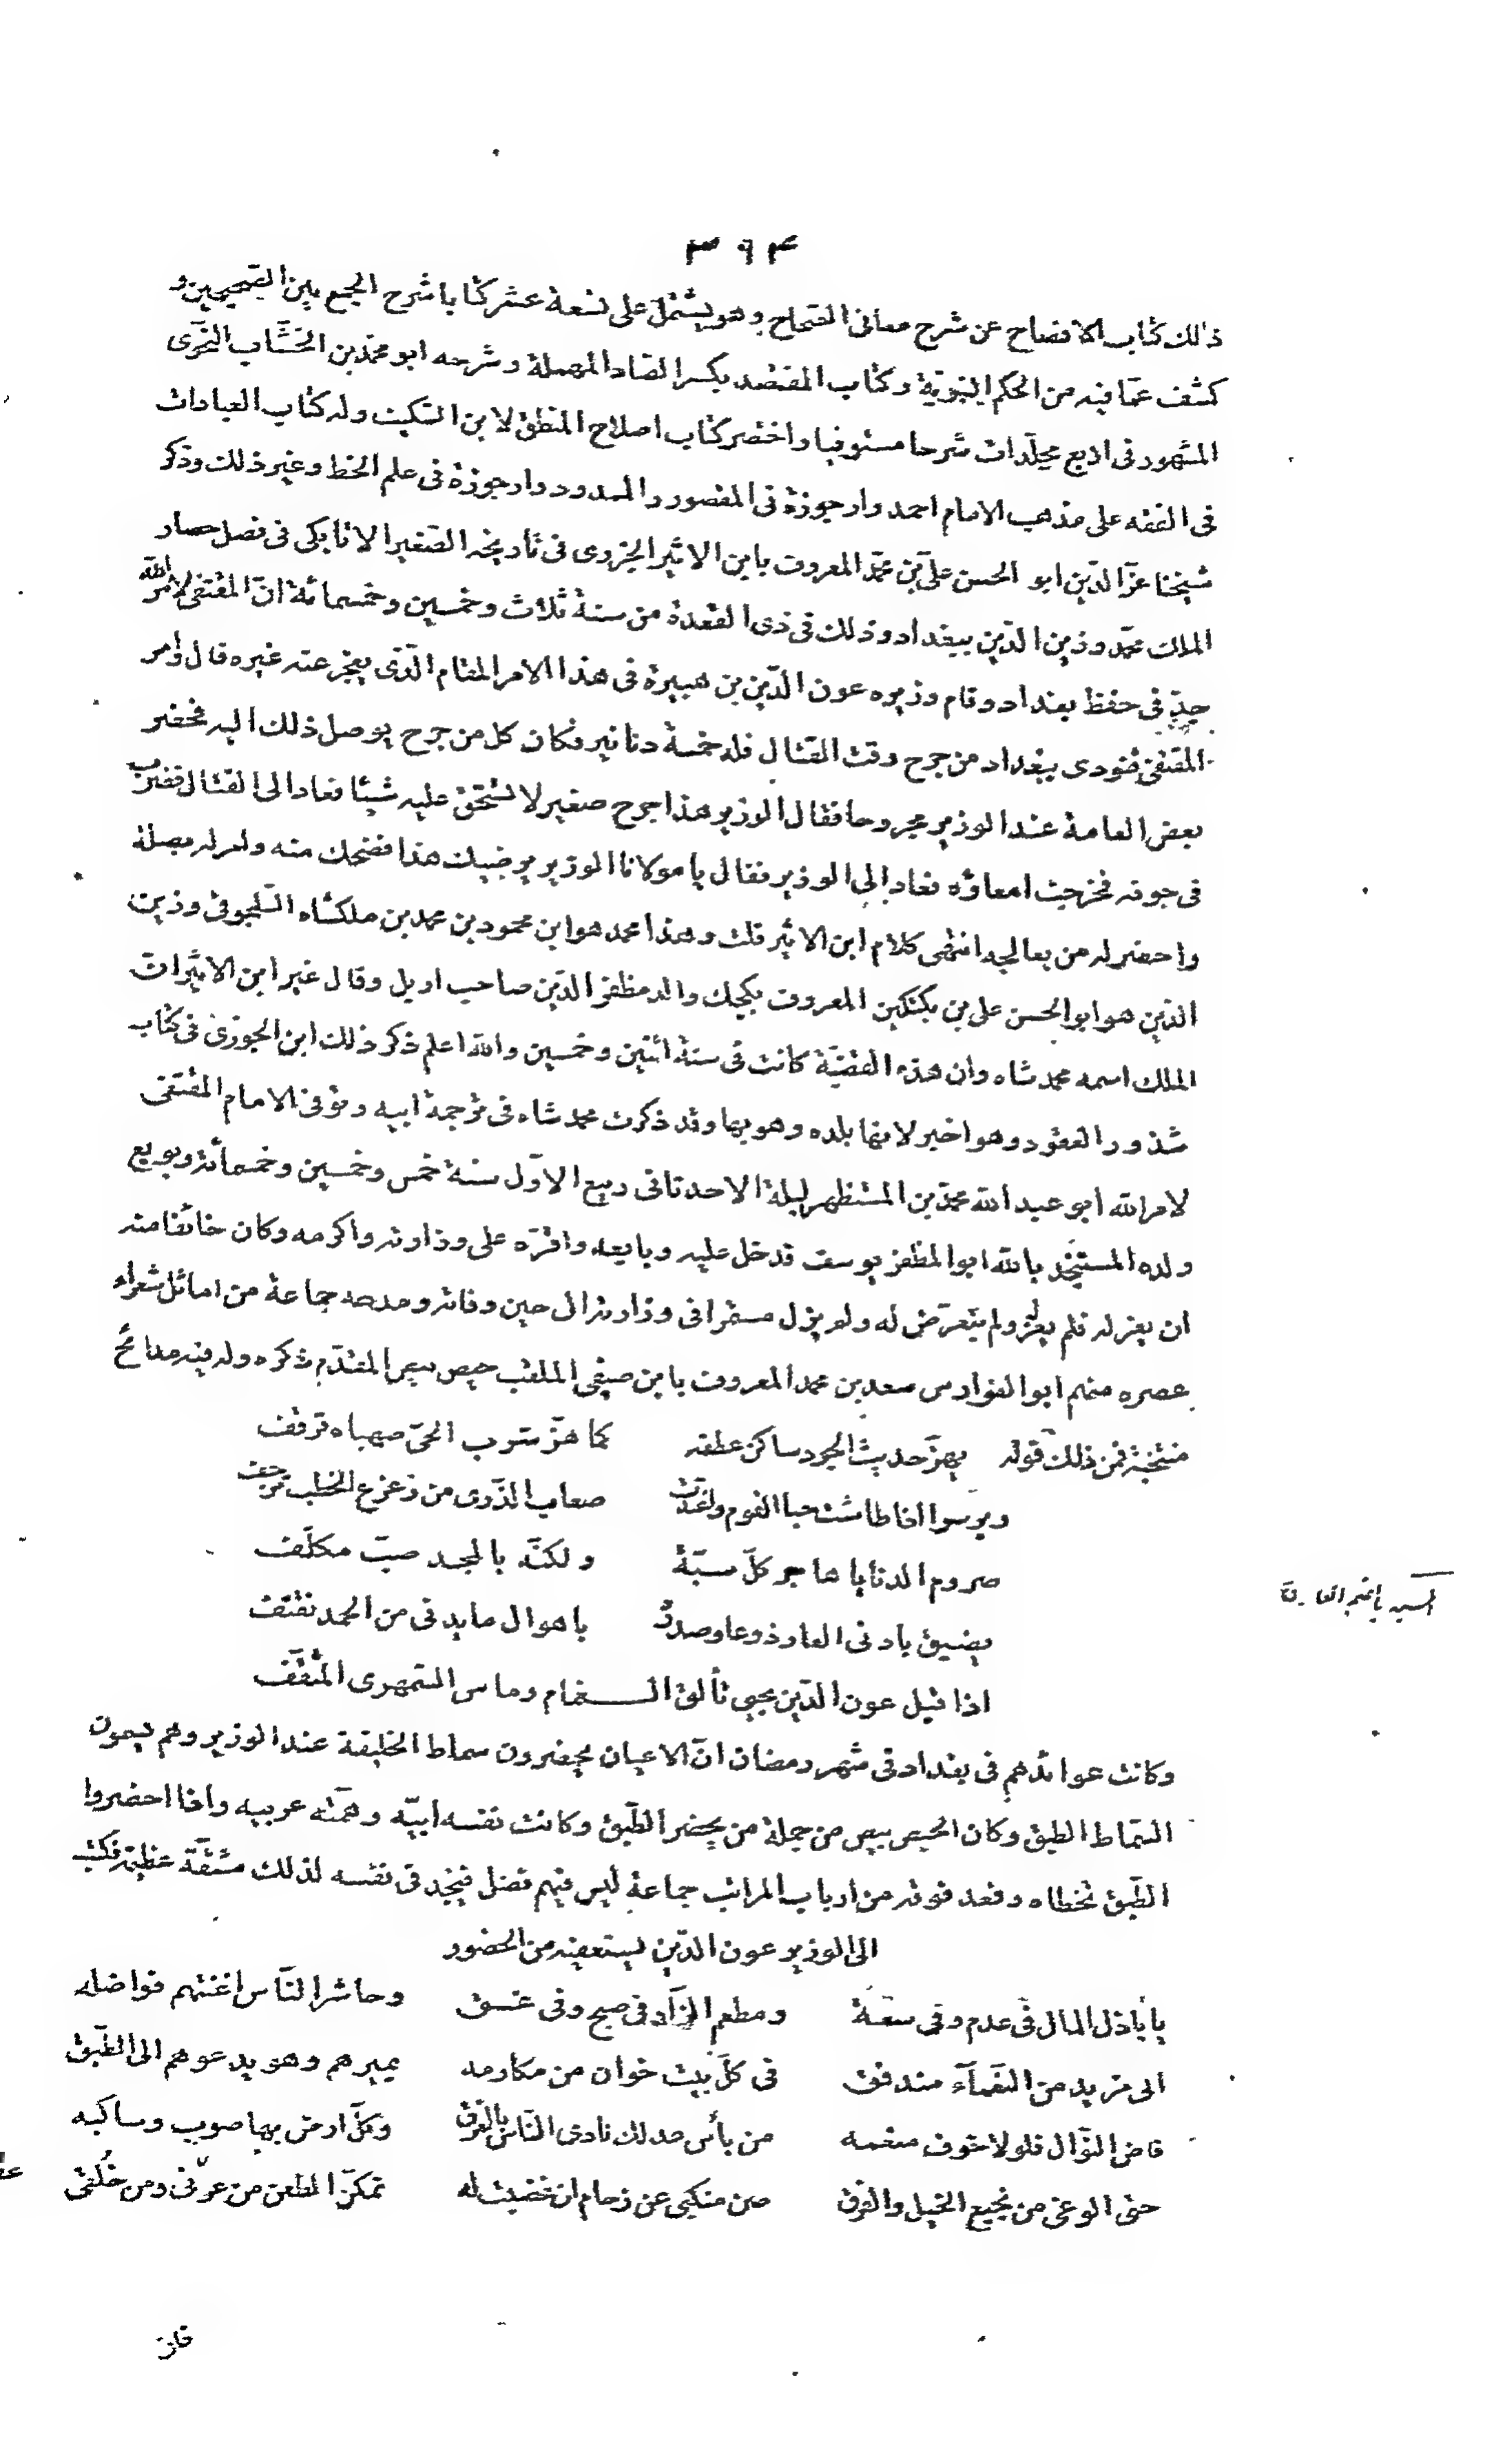 ٣٦۴
ذلك كتاب الافصاح عن شرح معانى الصحاح وهو يشتمل على تسعة عشر كتابا شرح الجمع بين الصحيحين و
كشف عمّا فيه من الحكم النبويّة وكتاب المقتصد بكسر الصاد المهملة وشرحه ابو محمّد بن الخشّاب النحوى
المشهور فى اربع مجلّدات شرحا مستوفيا واختصر كتاب اصلاح المنطق لابن السّكيت وله كتاب العبادات
فى الفقه على مذهب الامام احمد وارجوزة فى المقصور والممدود وارجوزة فى علم الخط وغير ذلك وذكر
شيخنا عزّ الدّين ابو الحسن علىّ بن محمّد المعروف بابن الاثير الجزرى فى تاريخه الصّغير الاتابكى فى فصل حصار
الملك محمّد وزين الدّين ببغداد وذلك فى ذى القعدة من سنة ثلاث وخمسين وخمسمائة انّ المقتفى لامر الله
جدّ فى حفظ بغداد وقام وزيره عون الدّين بن هبيرة فى هذا الامر المقام الّذى يعجز عنه غيره قال وامر
المقتفى فنودى ببغداد من جرح وقت القتال فله خمسة دنانير فكان كل من جرح يوصل ذلك اليه فحضر
بعض العامة عند الوزير مجروحا فقال الوزير هذا جرح صغير لا تستحق عليه شيئا فعاد الى القتال فضرب
فى جوفه فخرجت امعاؤه فعاد الى الوزير فقال يا مولانا الوزير يرضيك هذا فضحك منه وامر له بصلة
واحضر له من يعالجه انتهى كلام ابن الاثير قلت وهذا محمد هو ابن محمود بن محمد بن ملكشاه السّلجوقى وزين
الدّين هو ابو الحسن على بن بكتكين المعروف بكجك والد مظفر الدّين صاحب اربل وقال غير ابن الاثير ان
الملك اسمه محمد شاه وان هذه القضيّة كانت فى سنة اثنتين وخمسين والله اعلم ذكر ذلك ابن الجوزى فى كتاب
شذور العقود وهو اخبر لانها بلده وهو بها وقد ذكرت محمد شاه فى ترجمة ابيه وتوفى الامام المقتفى
لامر الله ابو عبد الله محمّد بن المستظهر ليلة الاحد ثانى ربيع الاوّل سنة خمس وخمسين وخمسمائة وبويع
ولده المستنجد بالله ابو المظفر يوسف فدخل عليه وبايعه واقرّه على وزارته واكرمه وكان خائفا منه
ان يعزله فلم يعزله ولم يتعرّض له ولم يزل مستمرا فى وزارته الى حين وفاته ومدحه جماعة من اماثل شعراء
عصره منهم ابو الفوارس سعد بن محمد المعروف بابن صيفى الملقب حيص بيص المقدّم ذكره وله فيه مدائح
منتخبة فمن ذلك قوله يهزّ حديث الجود ساكن عطفه كما هزّ شرب الحىّ صهباء قرقف
ويرسوا اذا طاشت حبا القوم واغتدت صعاب الذّرى من زعزع الخطب ترجف
صروم الدنايا هاجر كلّ سبّة ولكنّه بالمجد صبّ مكلّف
يضيق بادنى العار ذرعا وصدره باهوال ما يدنى من الحمد نفنف
اذا قيل عون الدّين يحيى تألق الغمام وماس السّمهرى المثقّف
وكانت عوائدهم فى بغداد فى شهر رمضان انّ الاعيان يحضرون سماط الخليفة عند الوزير وهم يسمون
السّماط الطبق وكان الحيص بيص من جملة من يحضر الطّبق وكانت نفسه ابيّة وهمّته عربيه واذا احضروا
الطّبق تخطاه وقعد فوقه من ارباب المراتب جماعة ليس فيهم فضل فيجد فى نفسه لذلك مشقّة عظيمة فكتب
الى الوزير عون الدّين يستعفيه من الحضور
يا باذل المال فى عدم وفى سعة ومطعم الزّاد فى صبح وفى غسق وحاشر النّاس اغنتهم فواضله
الى مزيد من النعمآء مندفق فى كلّ بيت خوان من مكارمه يميرهم وهو يدعوهم الى الطّبق
فاض النّوال فلولا خوف مفعمه من بأس عدلك نادى النّاس بالغرق وكلّ ارض بها صوب وساكبه
حتى الوغى من نجيع الخيل والعرق صن منكبى عن زحام ان غضبت له تمكّن الطعن من عرضى ومن خُلقى
فان